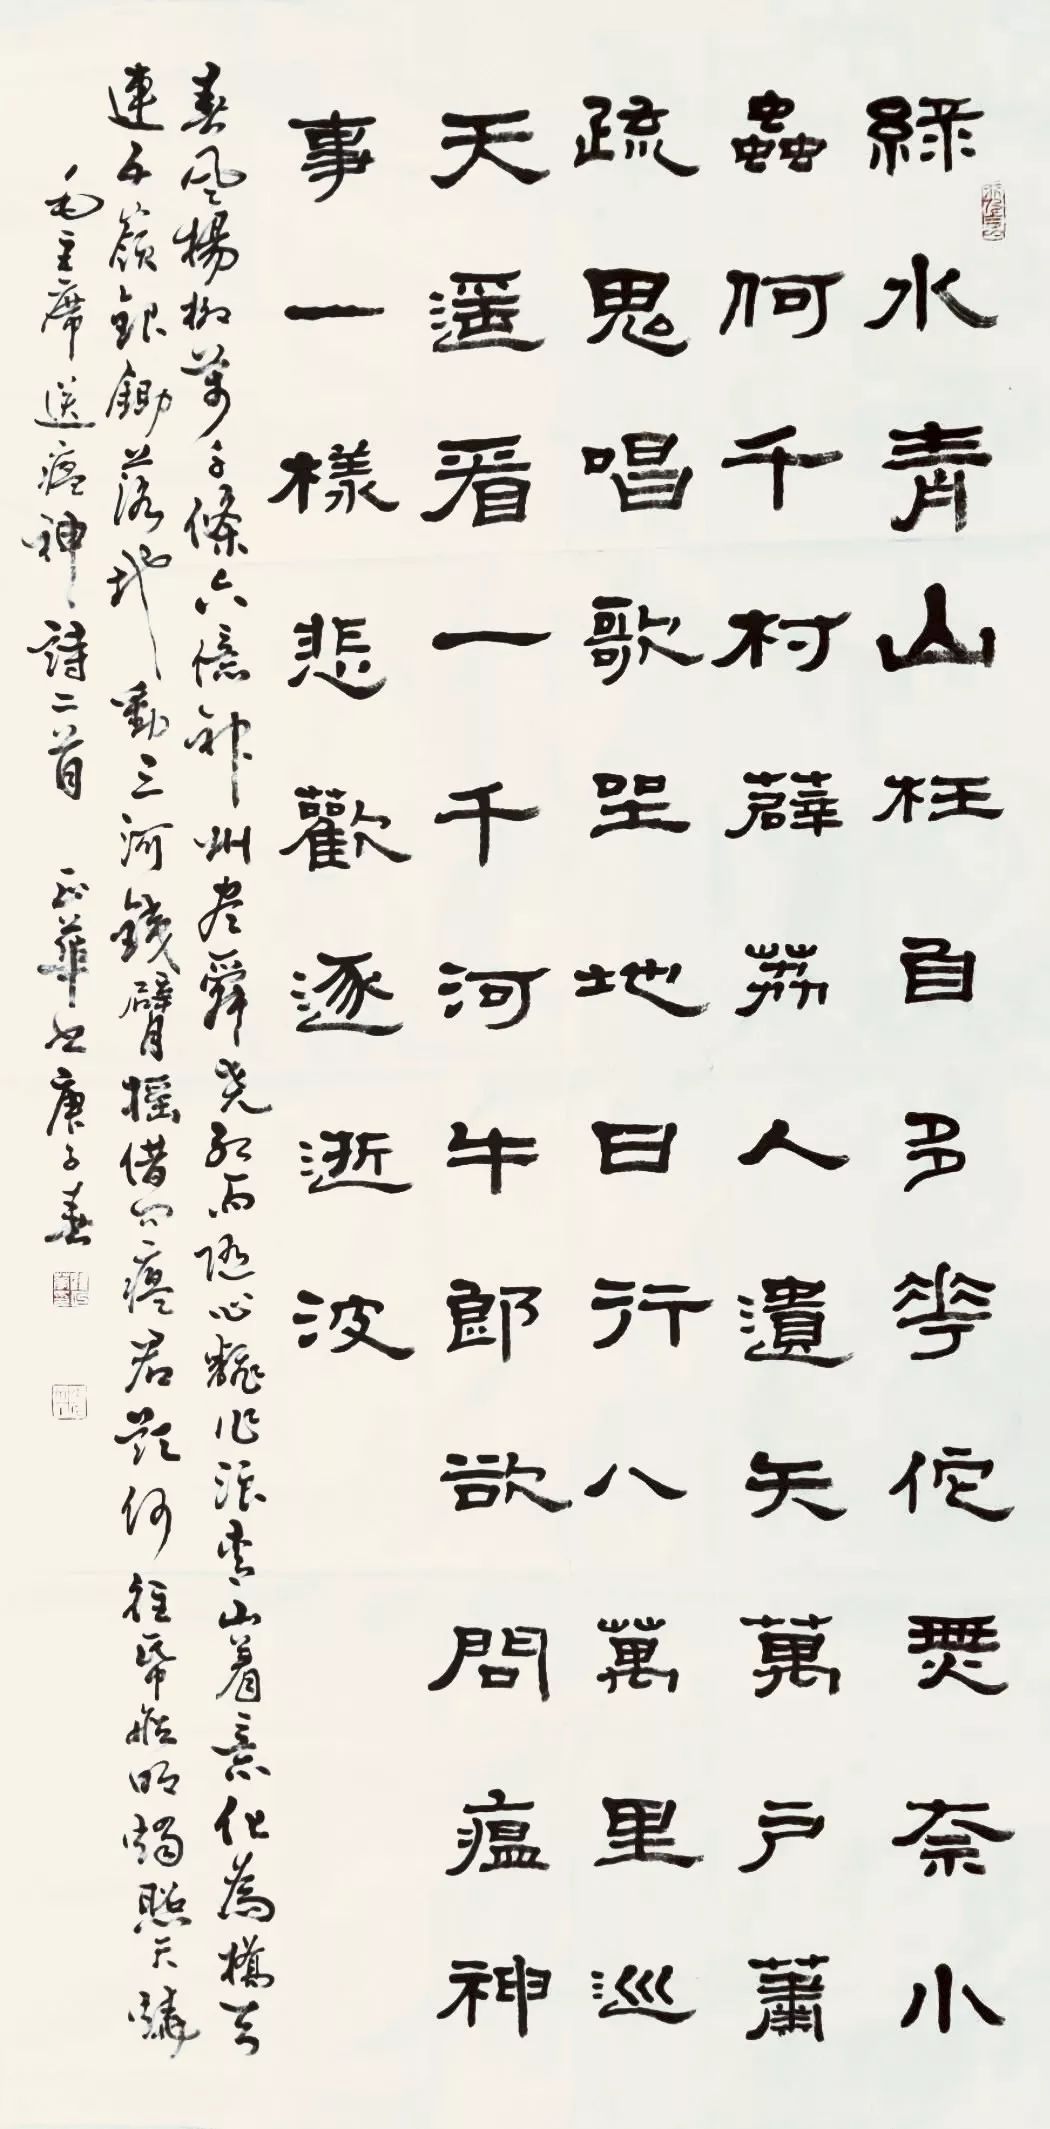 綠水青山枉自多華佗無奈小
蟲何千村薜荔人遺矢萬戶蕭
疏鬼唱歌坐地日行八萬里巡
天遥看一千河牛郎欲問瘟神
事一樣悲歡逐逝波
春風楊柳萬千條六億神州尽舜尧紅雨隨心翻作浪青山着意化為橋天
連五嶺銀鋤落地動三河鐵臂搖借问瘟君欲何往帋船明燭照天燒
毛主席送瘟神詩二首 正華书庚子春